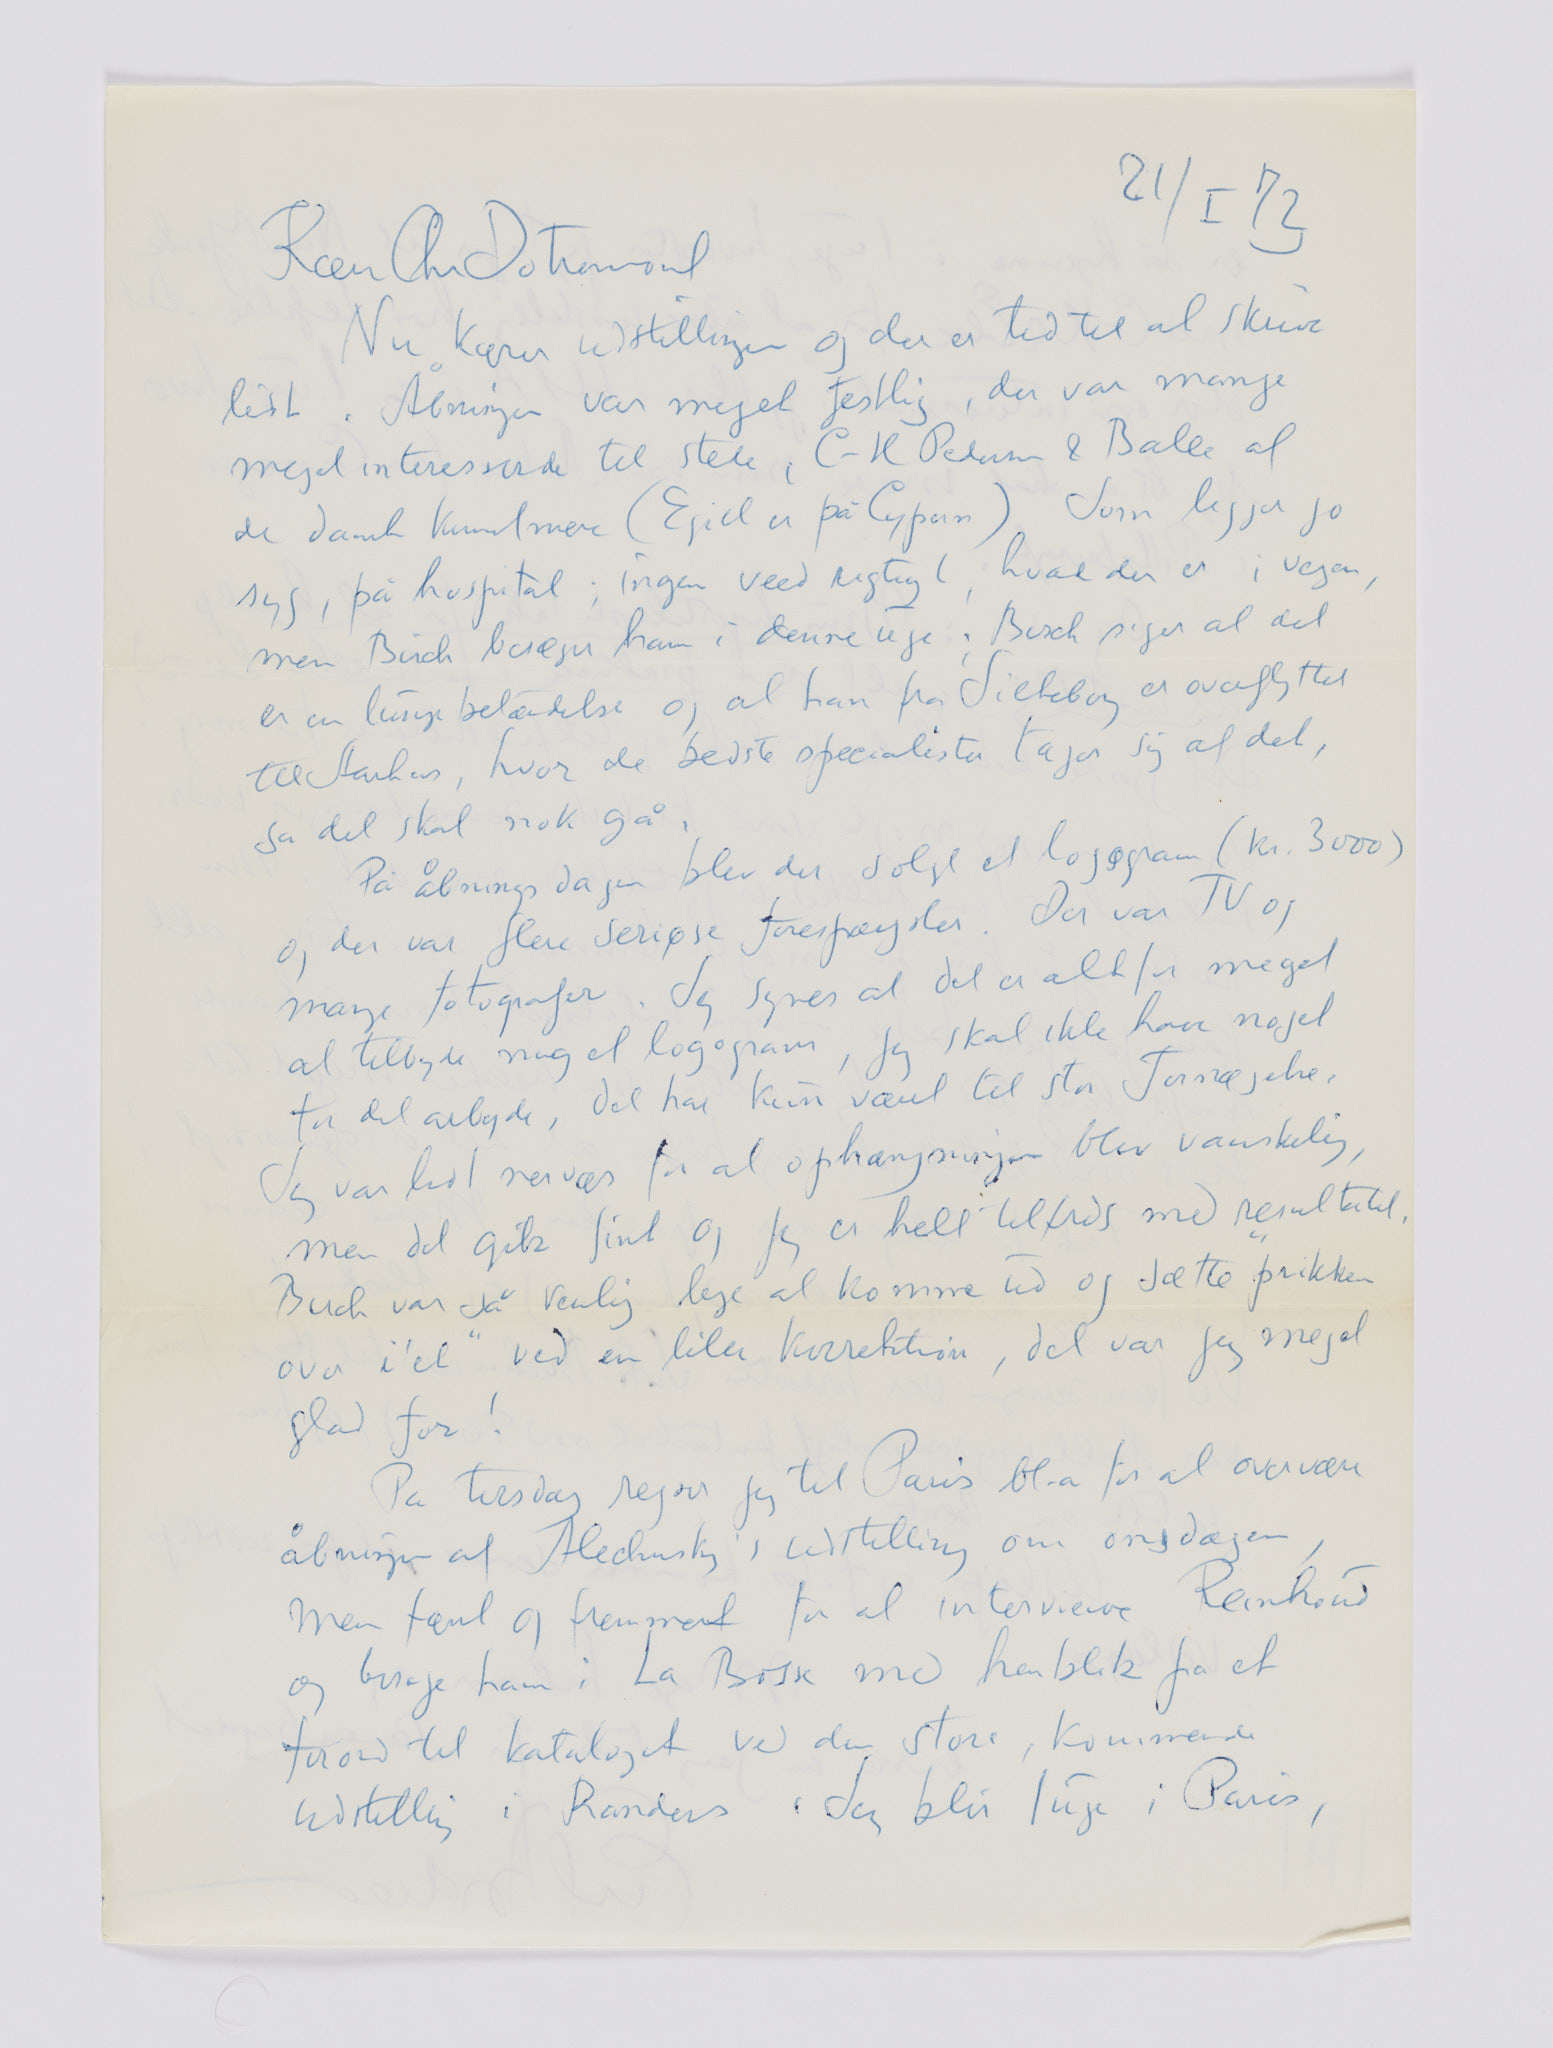 21/I 73
Kære Chr Dotremont
Nu kører udstillingen og der er tid til at skrive
lidt. Åbningen var meget festlig, der var mange
meget interesserede til stede, C-H Pedersen & Balle af
de danske kunstnere (Egill er på Cypern) Jorn ligger jo
syg, på hospital; ingen veed rigtigt, hvad der er i vejen,
men Birch besøger ham i denne uge; Birch siger at det
er en lungebetændelse og at han fra Silkeborg er overflyttet
til Aarhus, hvor de bedste specialister tager sig af det,
så det skal nok gå.
På åbningsdagen blev der solgt et logogram (kr. 3000)
og der var flere seriøse forespørgsler. Der var TV og
mange fotografer. Jeg synes at det er alt for meget
at tilbyde mig et logogram, jeg skal ikke have noget
for det arbejde, det har kun været til stor fornøjelse.
Jeg var lidt nervøs for at ophængningen blev vanskelig,
men det gik fint og jeg er helt tilfreds med resultatet.
Birch var så venlig lige at komme ud og sætte "prikken
over i'et" ved en lille korrektion, det var jeg meget
glad for!
På tirsdag rejser jeg til Paris bl.a for at overvære
åbningen af Alechinsky's udstilling om onsdagen,
men først og fremmest for at interviewe Reinhoud
og besøge ham i La Bosse med henblik på et
forord til kataloget ved den store, kommende
udstilling i Randers. Jeg blir 1 uge i Paris,